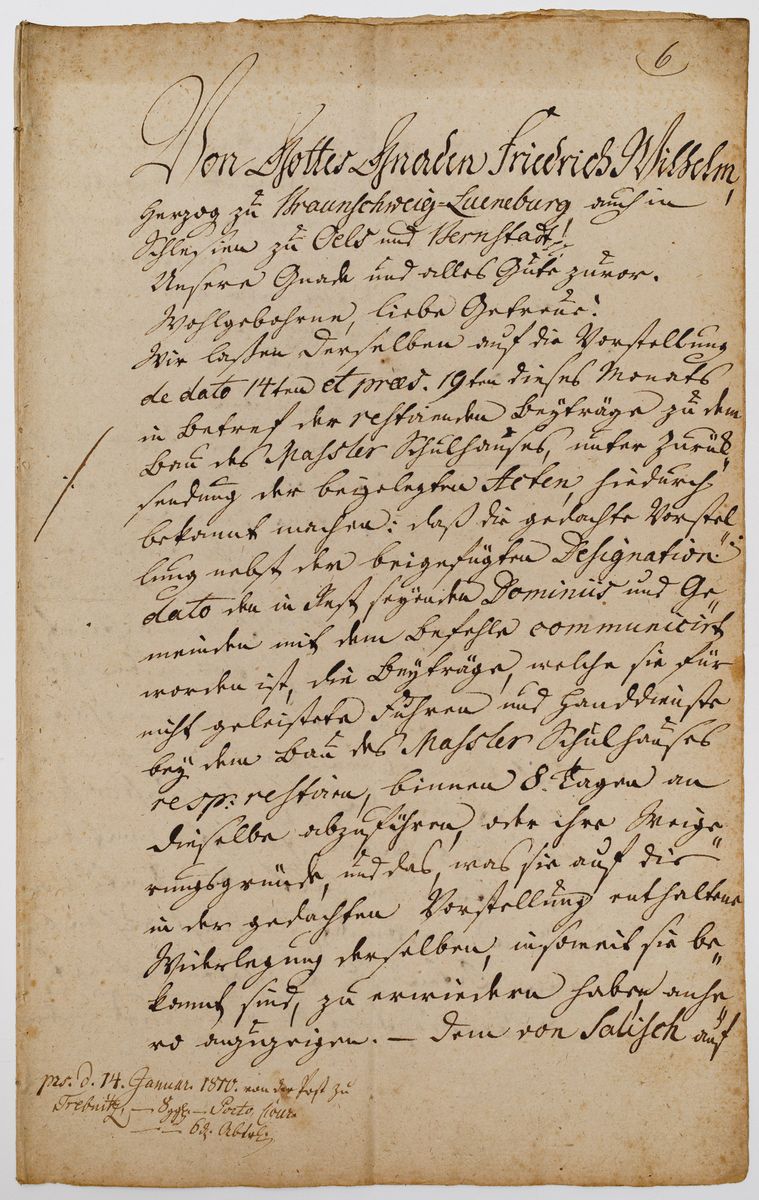 6
Von Gottes Gnaden Friedrich Wilhelm,
Herzog zu Braunschweig-Lueneburg, auch in
Schlesien zu Oels und Bernstadt!
Unsere Gnade und alles Gute zuvor.
Wohlgebohrne, liebe Getreue!
Wir laßen derselben auf die Vorstellung
de dato 14ten et praes. 19ten dieses Monats
in Betref der restirenden Beyträge zu dem
Bau des Massler Schulhauses, unter Zurük„
sendung der beigelegten Acten, hiedurch
bekannt machen: daß die gedachte Vorstel„
lung nebst der beigefügten Designation
dato den in Rest seyenden Dominiis und Ge„
meinden mit dem Befehle communicirt
worden ist, die Beyträge, welche sie für
nicht geleistete Fuhren und Handdienste
bey dem Bau des Massler Schulhauses
resp: restiren, binnen 8. Tagen an
dieselbe abzuführen, oder ihre Weige„
rungsgründe, und das, was sie auf die
in der gedachten Vorstellung enthaltene
Widerlegung derselben, insoweit sie be„
kannt sind, zu erwiedern haben, anhe„
ro anzuzeigen. — Dem von Salisch auf
prs. d. 14. Januar. 1810. von der Post zu
Trebnitz — 8 — Porto
— — 6